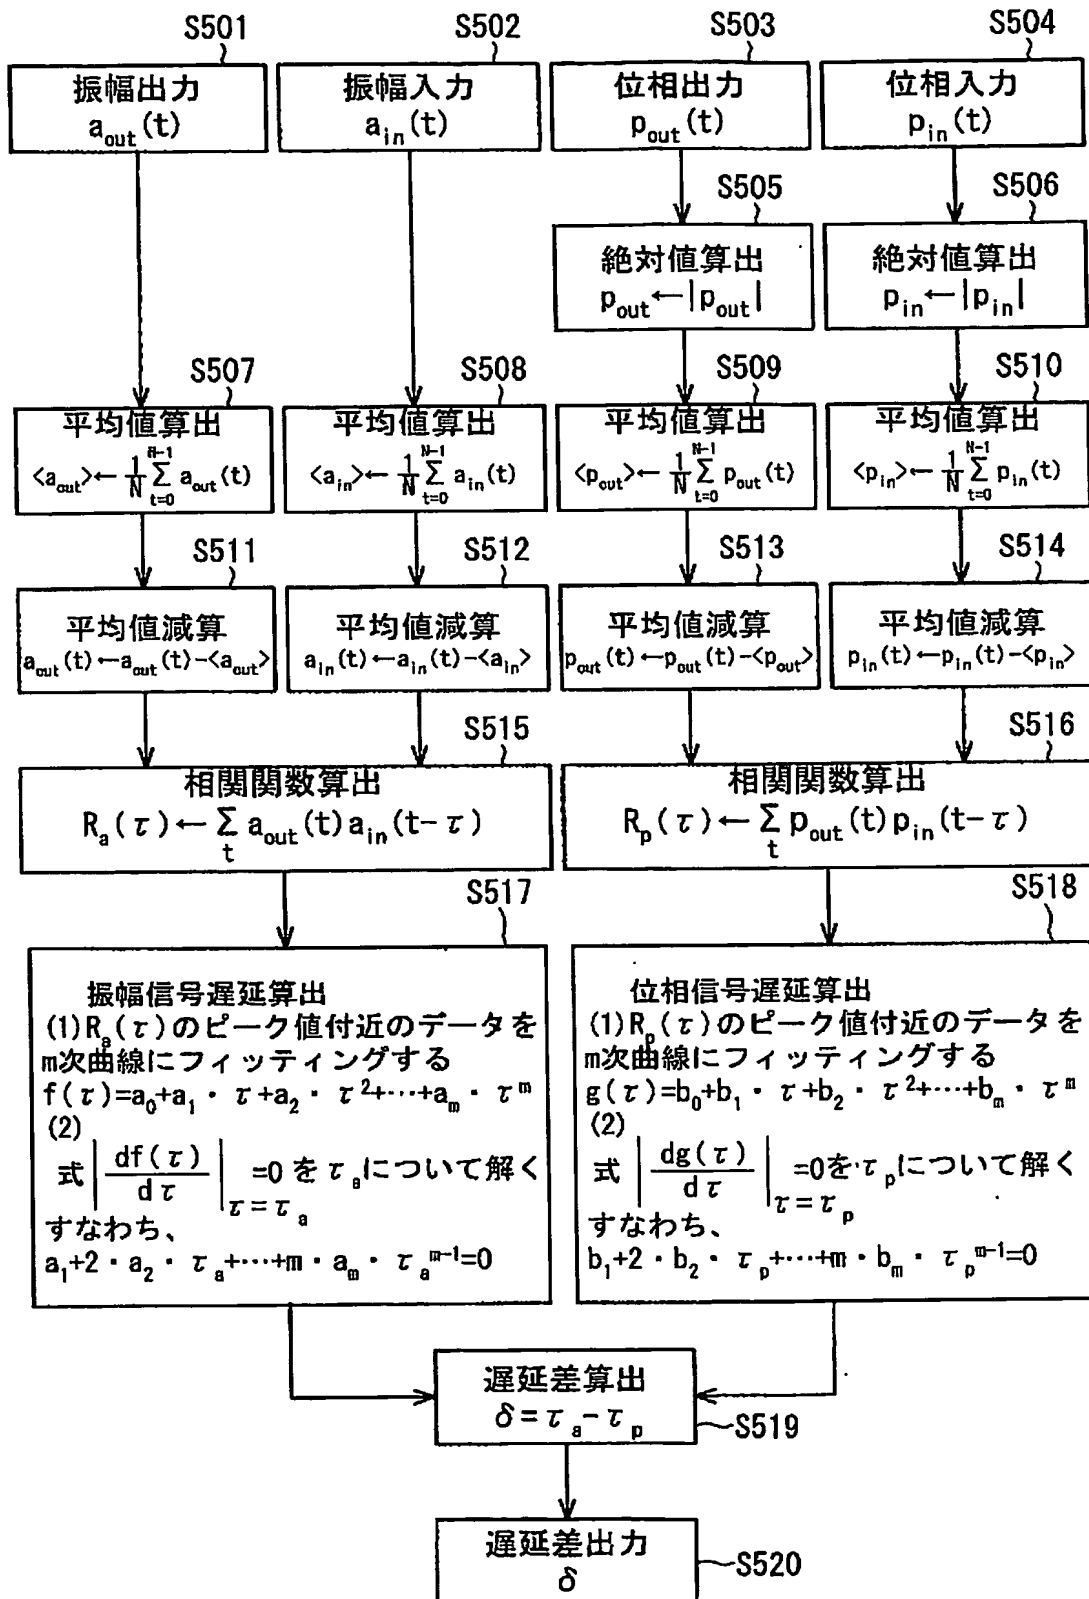 S501
S502
S503
S504
振幅出力
a_out(t)
振幅入力
a_in(t)
位相出力
p_out(t)
位相入力
p_in(t)
S505
S506
絶対値算出
p_out←|p_out|
絶対値算出
p_in←|p_in|
S507
S508
S509
S510
平均値算出
<a_out>← 1/N Σ_{t=0}^{N-1} a_out(t)
平均値算出
<a_in>← 1/N Σ_{t=0}^{N-1} a_in(t)
平均値算出
<p_out>← 1/N Σ_{t=0}^{N-1} p_out(t)
平均値算出
<p_in>← 1/N Σ_{t=0}^{N-1} p_in(t)
S511
S512
S513
S514
平均値減算
a_out(t)←a_out(t)-<a_out>
平均値減算
a_in(t)←a_in(t)-<a_in>
平均値減算
p_out(t)←p_out(t)-<p_out>
平均値減算
p_in(t)←p_in(t)-<p_in>
S515
S516
相関関数算出
R_a(τ)← Σ_t a_out(t)a_in(t-τ)
相関関数算出
R_p(τ)← Σ_t p_out(t)p_in(t-τ)
S517
S518
振幅信号遅延算出
(1)R_a(τ)のピーク値付近のデータを
m次曲線にフィッティングする
f(τ)=a_0+a_1・τ+a_2・τ^2+…+a_m・τ^m
(2)
式|df(τ)/dτ|_{τ=τ_a}=0をτ_aについて解く
すなわち、
a_1+2・a_2・τ_a+…+m・a_m・τ_a^{m-1}=0
位相信号遅延算出
(1)R_p(τ)のピーク値付近のデータを
m次曲線にフィッティングする
g(τ)=b_0+b_1・τ+b_2・τ^2+…+b_m・τ^m
(2)
式|dg(τ)/dτ|_{τ=τ_p}=0をτ_pについて解く
すなわち、
b_1+2・b_2・τ_p+…+m・b_m・τ_p^{m-1}=0
遅延差算出
δ=τ_a-τ_p
S519
遅延差出力
δ
S520